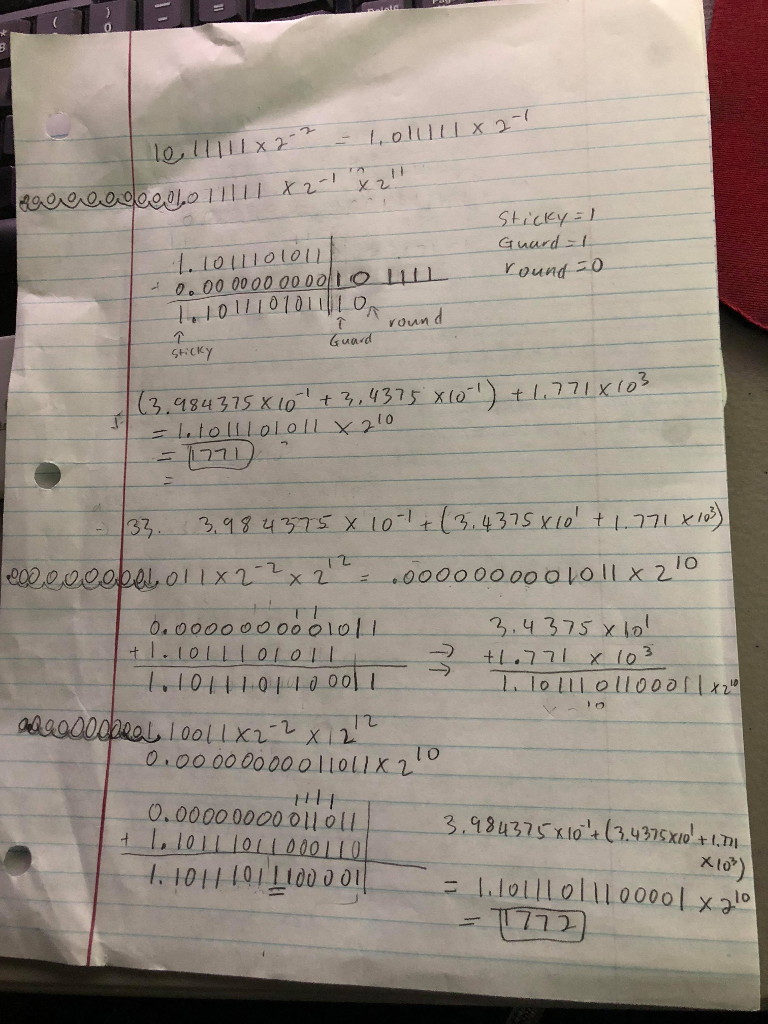 10.11111 x 2^-2 = 1.011111 x 2^-1
1011111 x 2^-1 x 2^11
Sticky = 1
Guard = 1
round = 0
1.1011101011
+ 0.0000000000 | 10 1111
1.1011101011 | 10
↑ sticky
↑ Guard
↖ round
(3.984375 x 10^-1 + 3.4375 x 10^-1) + 1.771 x 10^3
= 1.1011101011 x 2^10
= 1771
=
33. 3.984375 x 10^-1 + (3.4375 x 10^1 + 1.771 x 10^3)
011 x 2^-2 x 2^12 = .0000000001011 x 2^10
0.0000000001011
+ 1.1011101011
1.1011101100011
⇒ 3.4375 x 10^1
+1.771 x 10^3
1.1011101100011 x 2^10
10011 x 2^-2 x 2^12
0.00000000011011 x 2^10
1111
0.00000000011011
+ 1.10111011000110
1.10111011100001
3.984375 x 10^-1 + (3.4375 x 10^1 + 1.771
x 10^3)
= 1.10111011100001 x 2^10
= 1772